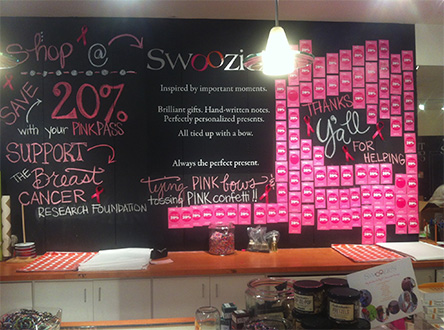 Shop @
SAVE 20%
with your PINKPASS
SUPPORT
THE Breast
CANCER
RESEARCH FOUNDATION
Swoozie
Inspired by important moments.
Brilliant gifts. Hand-written notes.
Perfectly personalized presents.
All tied up with a bow.
Always the perfect present.
tying PINK bows &
tossing PINK confetti!!
THANKS
Y'all
FOR
HELPING